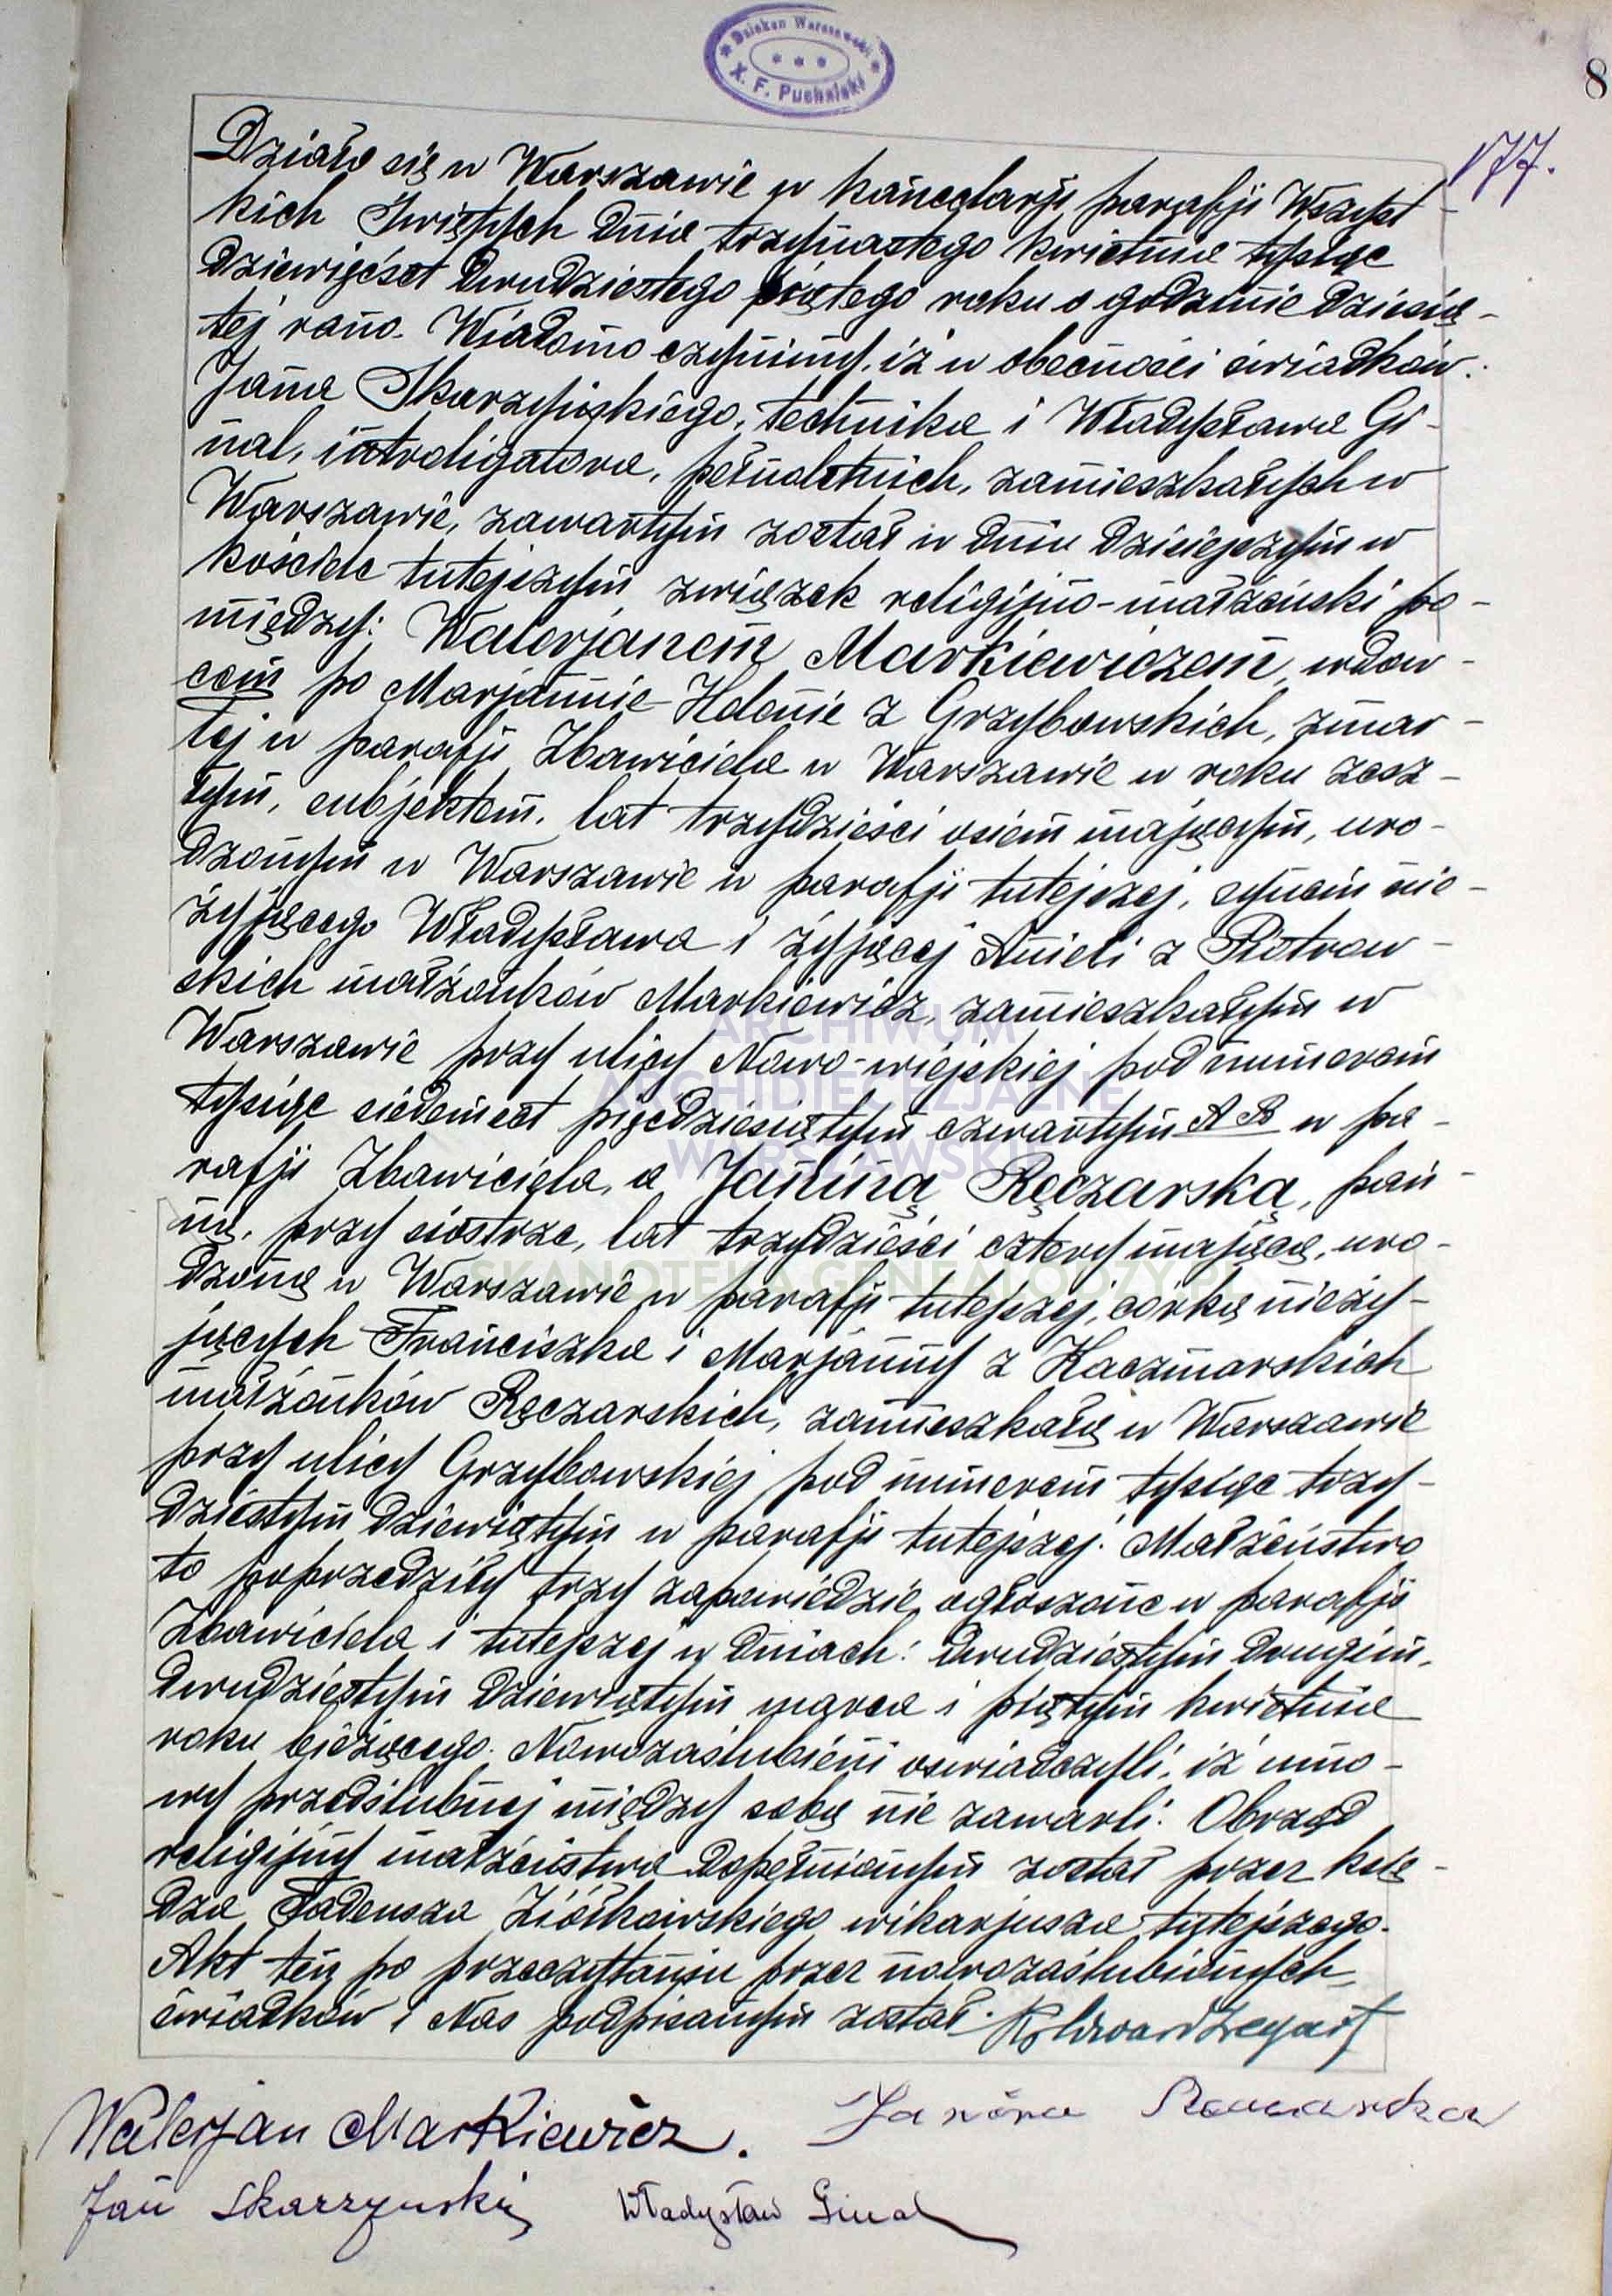 * Dziekan Warszawski *
* * *
X. F. Puchalski
8
177.
Działo się w Warszawie w kancelarji parafji Wszyst-
kich Świętych dnia trzynastego kwietnia tysiąc
dziewięćset dwudziestego piątego roku o godzinie dziesią-
tej rano. Wiadomo czynimy, iż w obecności świadków:
Jana Skarzyńskiego, technika i Władysława Gi-
nal, introligatora, pełnoletnich, zamieszkałych w
Warszawie, zawartym został w dniu dzisiejszym w
kościele tutejszym związek religijno-małżeński po-
między: Walerjanem Markiewiczem, wdow-
cem po Marjannie Helenie z Grzybowskich, zmar-
łej w parafji Zbawiciela w Warszawie w roku zesz-
łym, subjektem, lat trzydzieści osiem mającym, uro-
dzonym w Warszawie w parafji tutejszej, synem nie-
żyjącego Władysława i żyjącej Anieli z Piotrow-
skich małżonków Markiewicz, zamieszkałym w
Warszawie przy ulicy Nowo-wiejskiej pod numerem
tysiąc siedemset pięćdziesiątym czwartym A B w pa-
rafji Zbawiciela, a Janiną Ręczarską, pan-
ną, przy siostrze, lat trzydzieści cztery mającą, uro-
dzoną w Warszawie w parafji tutejszej, córką nieży-
jących Franciszka i Marjanny z Kaczmarskich
małżonków Ręczarskich, zamieszkałą w Warszawie
przy ulicy Grzybowskiej pod numerem tysiąc trzy-
dziestym dziewiątym w parafji tutejszej. Małżeństwo
to poprzedziły trzy zapowiedzie, ogłoszone w parafji
Zbawiciela i tutejszej w dniach: dwudziestym drugim,
dwudziestym dziewiątym marca i piątym kwietnia
roku bieżącego. Nowozaślubieni oświadczyli, iż umo-
wy przedślubnej między sobą nie zawarli. Obrząd
religijny małżeństwa dopełnionym został przez księ-
dza Tadeusza Ziółkowskiego, wikarjusza tutejszego.
Akt ten po przeczytaniu przez nowozaślubionych,
świadków i Nas podpisanym został.
Walerjan Markiewicz.
Janina Ręczarska
Jan Skarzyński
Władysław Ginal
ARCHIWUM
ARCHIDIECEZJALNE
WARSZAWSKIE
SKANOTEKA.GENEALODZY.PL